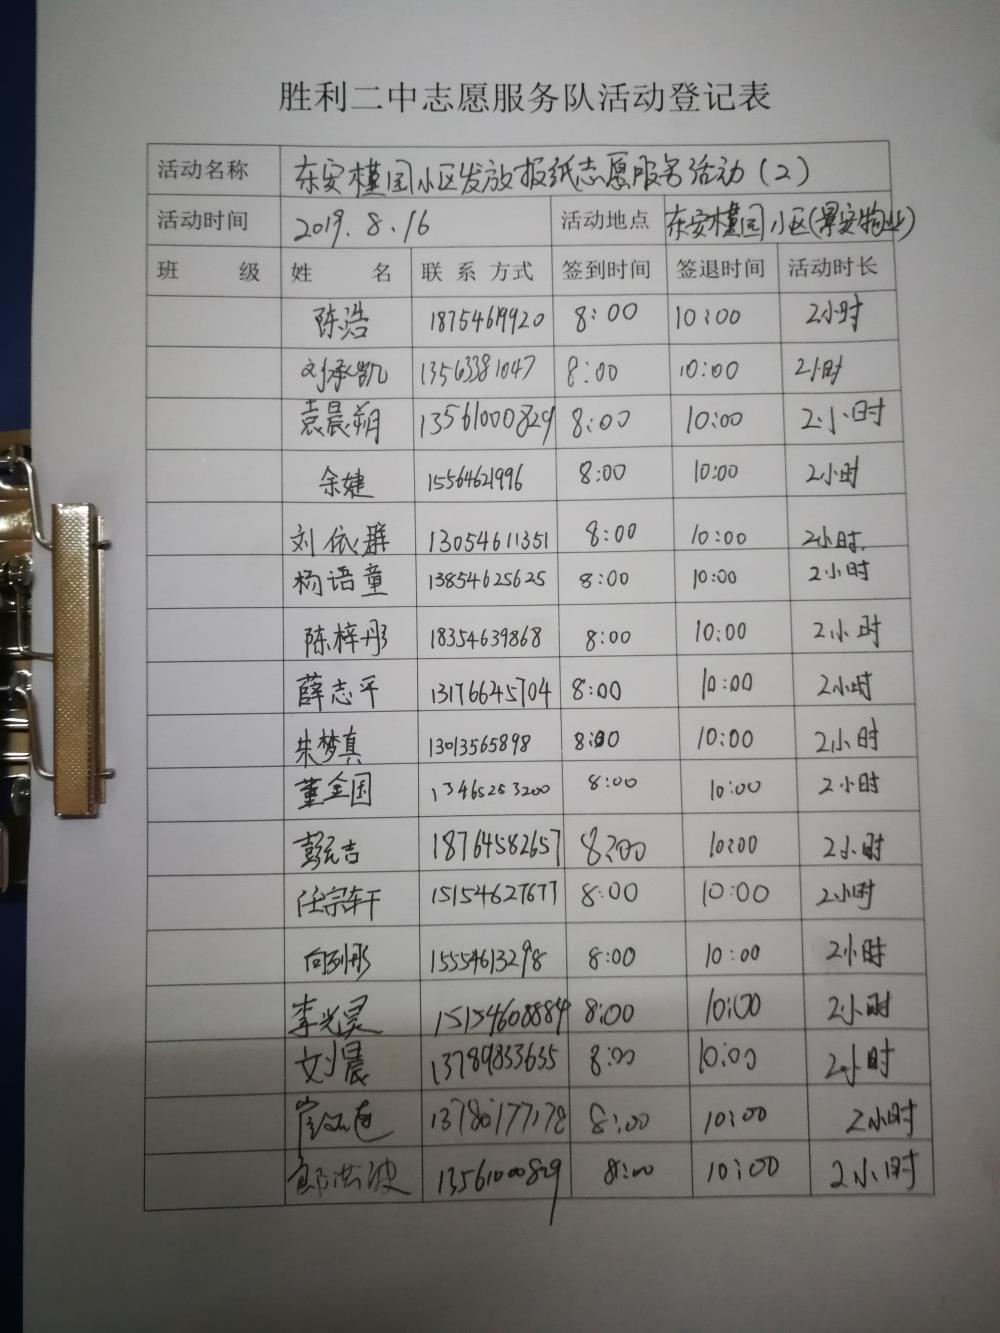 胜利二中志愿服务队活动登记表
活动名称 东安槿园小区发放报纸志愿服务活动(2)
活动时间 2019.8.16 活动地点 东安槿园小区(景安物业)
班 级 姓 名 联系方式 签到时间 签退时间 活动时长
陈浩 18754619920 8:00 10:00 2小时
刘承凯 13563381047 8:00 10:00 2小时
袁晨朔 13561000829 8:00 10:00 2小时
余婕 15564621996 8:00 10:00 2小时
刘依群 13054611351 8:00 10:00 2小时.
杨语童 13854625625 8:00 10:00 2小时
陈梓彤 18354639868 8:00 10:00 2小时
薛志平 13176645704 8:00 10:00 2小时
朱梦真 13013565898 8:00 10:00 2小时
董全国 13465253200 8:00 10:00 2小时
彭元吉 18764582657 8:00 10:00 2小时
任宗轩 15154627677 8:00 10:00 2小时
向列彤 15554613298 8:00 10:00 2小时
李光昊 15154608884 8:00 10:00 2小时
刘晨 13789833635 8:00 10:00 2小时
13780177178 8:00 10:00 2小时
郎洪波 13561000829 8:00 10:00 2小时